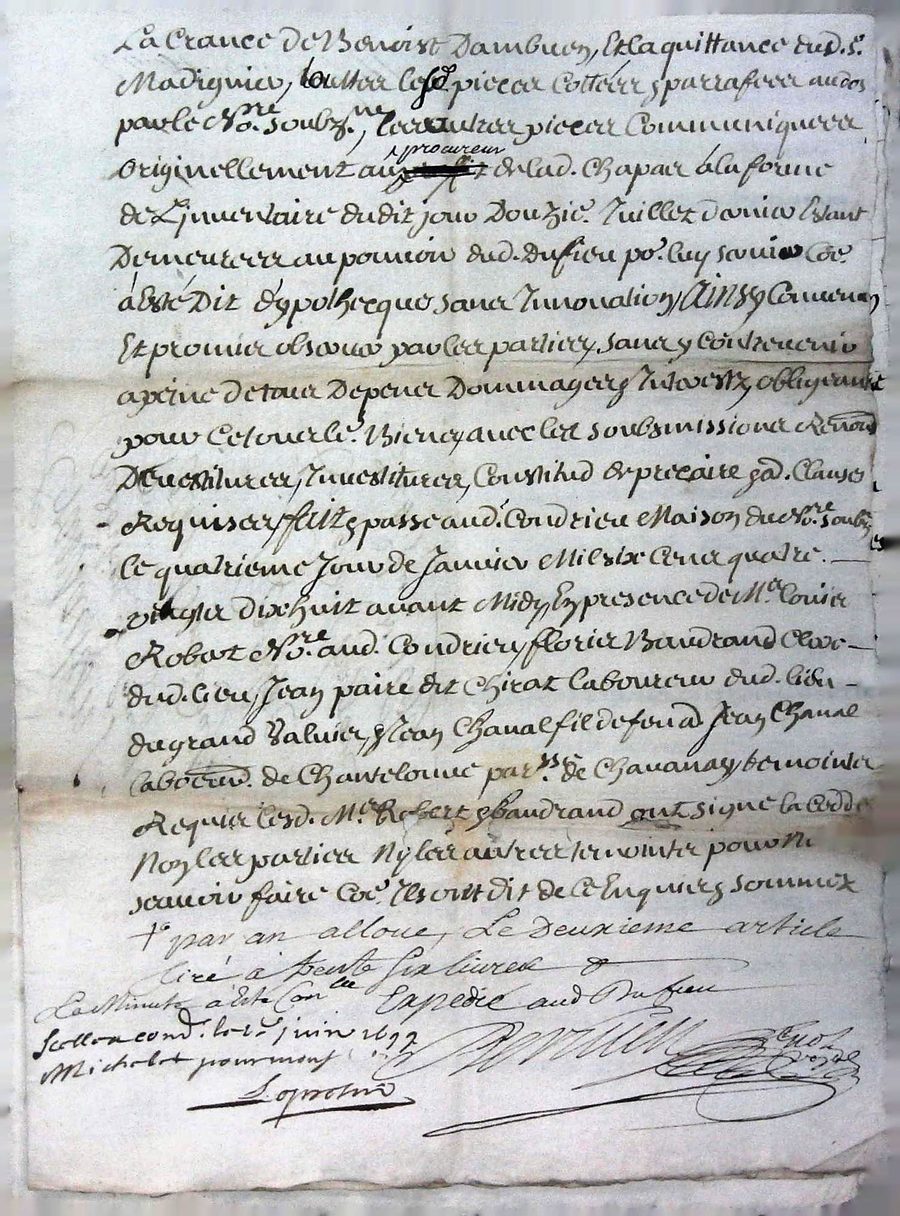 La Crance de Benoist Dambuen, Et la quittance dud. Sr.
Madignier, touttes lesd. pieces Cottées & parrafees au dos
par le Nore. soubzne., les autres pieces Communiquees
originellement au procureur de lad. Chapas á la forme
de Linventaire dudit jour Douzie. Juillet dernier Estant
Demeurees au pouvoir dud. Dufieu po. luy servir Coe.
á Esté Dit d'ypothecque sans Innovation, Ainsy Convenu
Et promis observer par les parties, sans y Contrevenir
a peine de tous Depens Dommages & Interestz, obligeants
pour Ce tous le. Biens, avec les soubsmissions Renon
Devestitures, Investitures, Constitud de precaire & ad. Clauses
Requises, fait & passé aud. Condrieu Maison du Nore. soubz
le quatrieme Jour de Janvier Mil six Cens quatre
vingts dix huit avant Midy, En presence de Me. Louis
Robert Nore. aud. Condrieu, floris Baudrand Clerc
dud. lieu, Jean paire dit Chirat laboureur dud. lieu
du grand Valuier, & Jean Chaval fil de feu a Jean Chaval
laboureur. de Chantelouve parss. de Chavanay temoins
Requis lesd. Me. Robert & Baudrand ont signé la Cedde
Non les parties Ny les autres temoints pour Ne
scavoir faire Coe. Ils ont dit de ce Enquis & sommez
+ par an alloue, Le Deuxieme article
tiré á trente six livres
La Minute a Esté Conlee
Expedié aud Dufieu
Scellé a cond. le 1r. juin 1699
Michelet pour mons